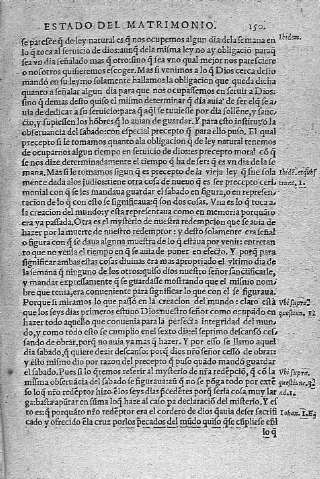 ESTADO DEL MATRIMONIO. 150.
se paresce q̃ de ley natural es q̃ nos ocupemos algun dia de la semana en
lo q̃ toca al seruicio de dios: aunq̃ dela misma ley no ay obligacio para q̃
sea vno dia señalado mas q̃ otro: sino q̃ sea vno qual mejor nos paresciere
o nosotros quisieremos escoger. Mas si venimos a lo q̃ Dios cerca desto
mando en su ley no solamente hallamos la obligacion que queda dicha
quanto a señalar algun dia para que nos ocupassemos en seruir a Dios:
sino q̃ demas desto quiso el mismo determinar q̃ dia auia de ser el q̃ se a
uia de dedicar a su seruicio: para q̃ aq̃l se tuuiesse por dia solẽne, y sanc-
to, y supiessen los hõbres q̃ lo auian de guardar. Y para esto instituyo la
obseruancia del sabado: con especial precepto q̃ para ello puso. El qual
precepto si le tomamos quanto a la obligacion q̃ de ley natural tenemos
de ocuparnos algun tiempo en seruicio de dios: es precepto moral: cõ q̃
se nos dize determinadamente el tiempo q̃ ha de ser: q̃ es vn dia de la se
mana. Mas si le tomamos sigun q̃ es precepto de la vieja ley q̃ fue sola
mente dada a los judios: tiene otra cosa de nueuo q̃ es ser precepto ceri-
monial con q̃ se les mandaua guardar el sabado en figura, o en represen-
tacion de lo q̃ con esto se significaua: q̃ son dos cosas. Vna es lo q̃ toca a
la creacion del mundo: y esta representaua como en memoria por quãto
era ya passada. Otra es el mysterio de nuestra redempcion que se auia de
hazer por la muerte de nuestro redemptor: y desto solamente era señal
o figura con q̃ se daua alguna muestra de lo q̃ estaua por venir: entretan
to que no venia el tiempo en q̃ se auia de poner en efecto. Y porq̃ para
significar ambas estas cosas diuinas era mas apropriado el vltimo dia de
la semana q̃ ninguno de los otros: quiso dios nuestro señor sanctificarle,
y mandar expressamente q̃ se guardasse mostrando que el mismo nom-
bre que tenia, era conueniente para significar lo que con el se figuraua.
Porque si miramos lo que passò en la creacion del mundo: claro està
que los seys dias primeros estuuo Dios nuestro señor como ocupado en
hazer todo aquello que conuenia para la perfecta integridad del mun-
do, y como todo esto se cumplio en el sexto dia: el septimo descansò ces-
sando de obrar, porq̃ no auia ya mas q̃ hazer. Y por esso se llamo aquel
dia sabado, q̃ quiere dezir descanso: porq̃ dios nr̃o señor cessò de obrar:
y esto mismo dio por razon del precepto q̃ puso quãdo mandò guardar
el sabado. Pues si lo q̃remos referir al mysterio de nr̃a redẽpciõ, q̃ cõ la
misma obseruãcia del sabado se figuraua: aun q̃ no se põga todo por exte
so lo q̃ nr̃o redẽptor hizo ẽ los seys dias p̃cedẽtes porq̃ seria cosa muy lar
ga: basta apũtar en suma lo q̃ haze al caso pa declaraciõ del misterio. Y es
to es: q̃ por quãto nr̃o redẽptor era el cordero de dios q̃ auia de ser sacrifi
cado y ofrecido ẽ la cruz por los pecados del mũdo quiso q̃ se cũpliesse ẽ si
lo q̃
Ibidem.
Vbi supra